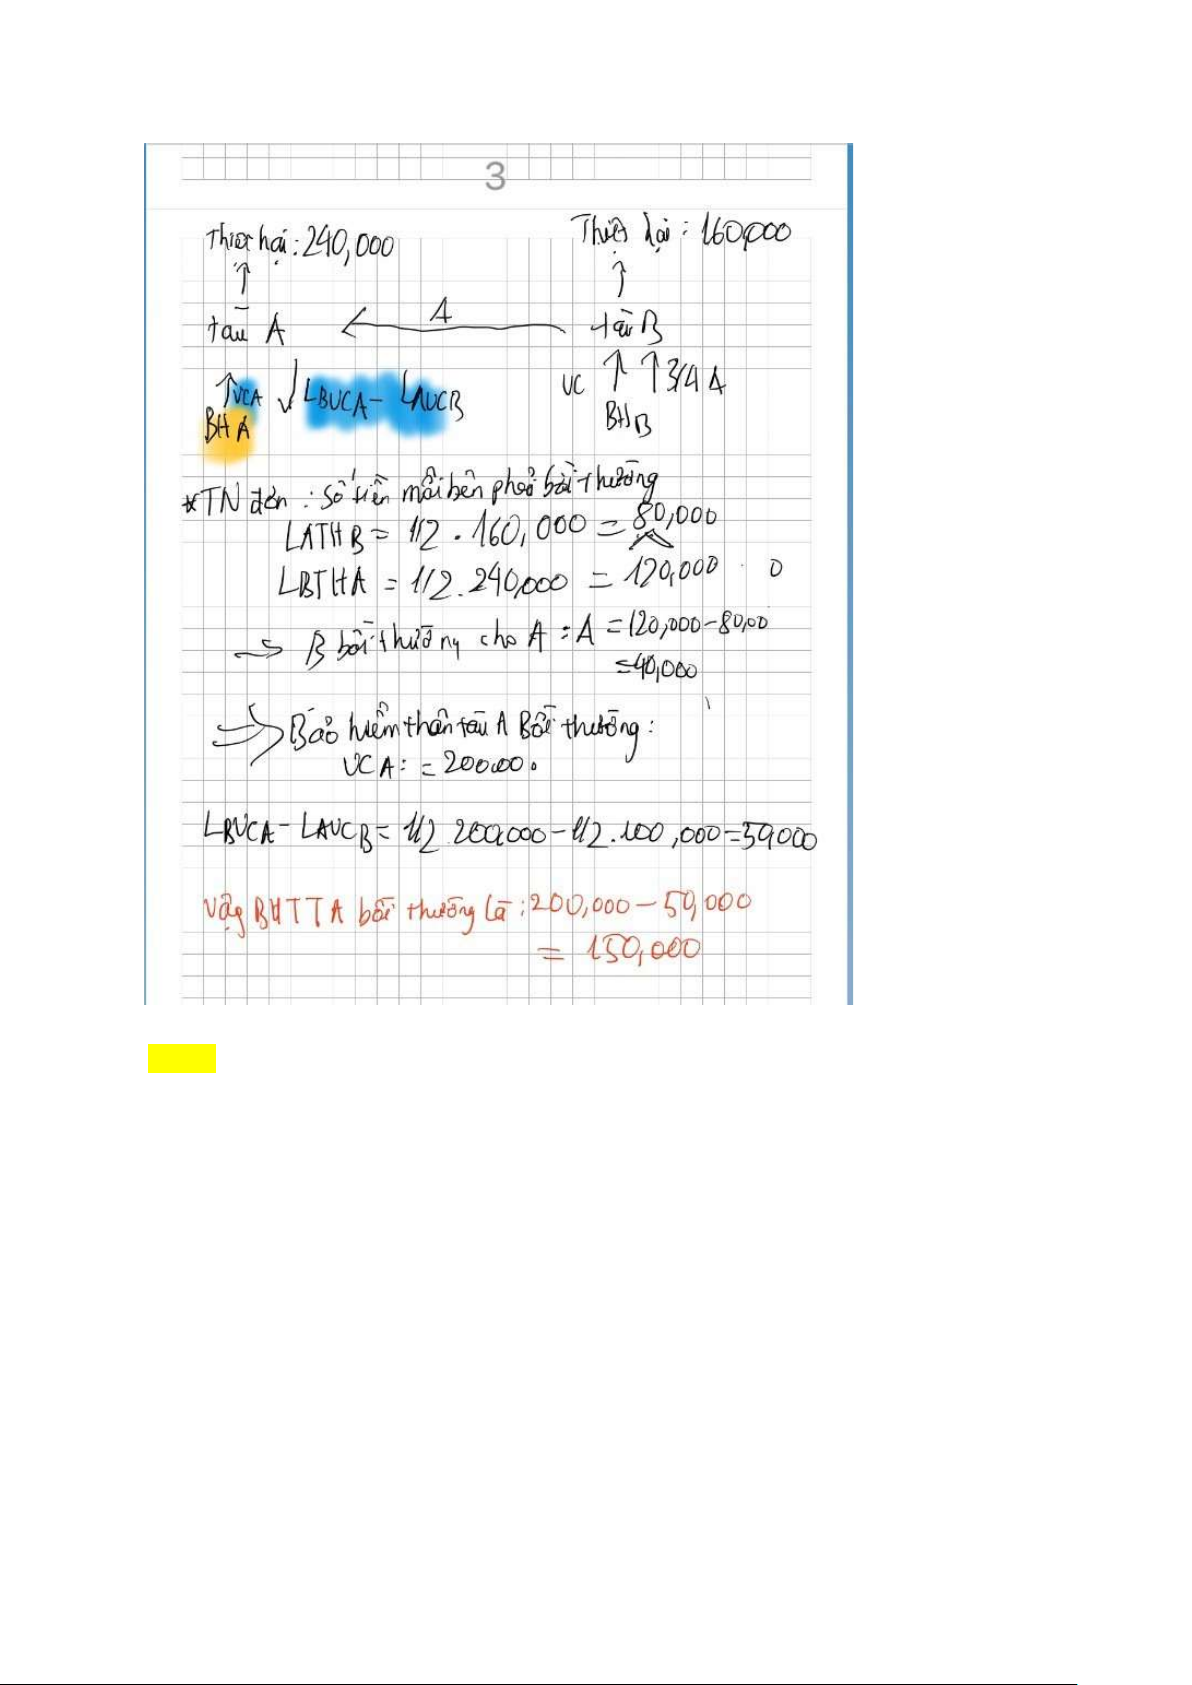 3
Thiệt hại : 240,000
Thiệt hại : 160,000
Δ
tàu A
tàu B
VCA
LBVCA - LAVCB
VC
3/4 Δ
BH A
BH B
* TN đơn : số tiền mỗi bên phải bồi thường
LATHB = 1/2 . 160,000 = 80,000
LBTHA = 1/2 . 240,000 = 120,000 0
→ B bồi thường cho A : Δ = 120,000 - 80,00
= 40,000
⇒ Bảo hiểm thân tàu A Bồi thường :
VCA : = 200.000
LBVCA - LAVCB = 1/2 . 200,000 - 1/2 . 100,000 = 50,000
Vậy BHTTA bồi thường là : 200,000 - 50,000
= 150,000